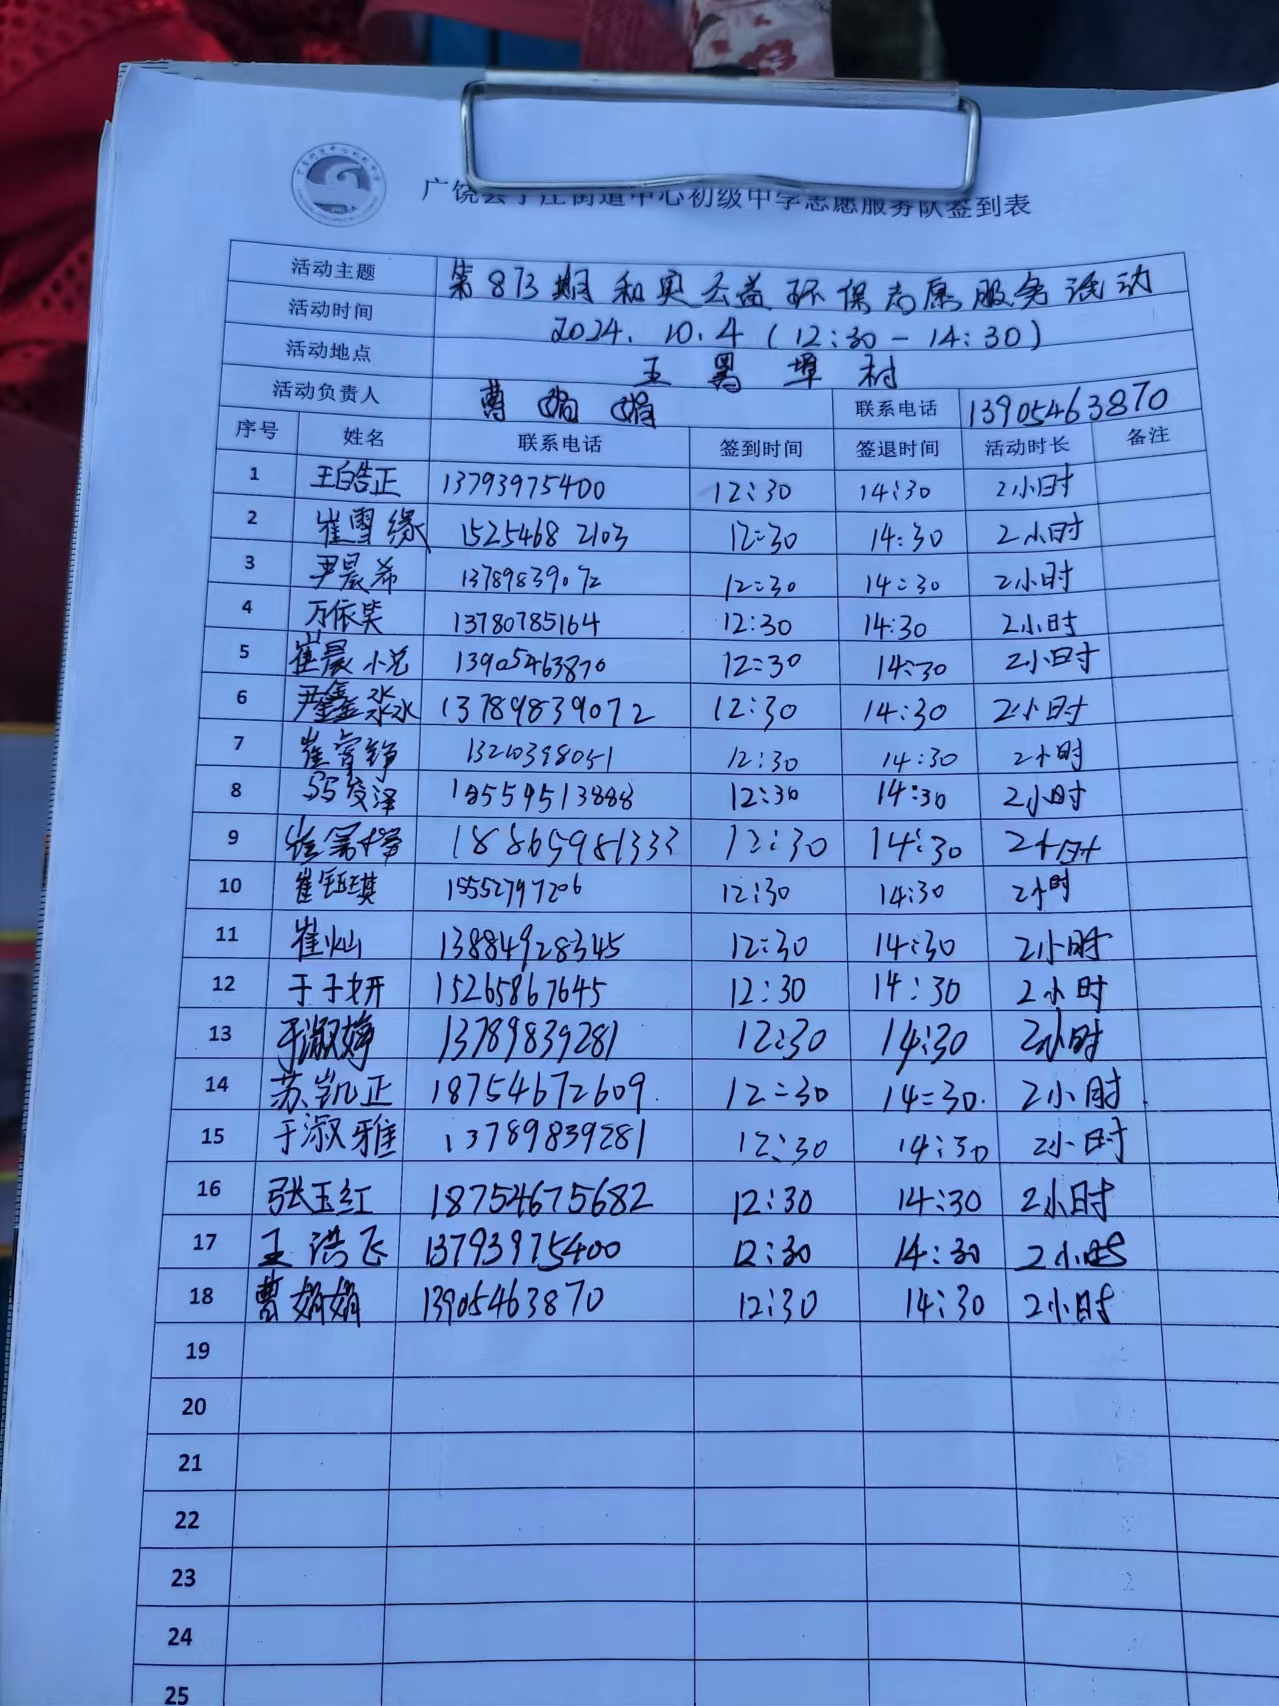 广饶县丁庄街道中心初级中学志愿服务队签到表
活动主题 第873期和奥公益环保志愿服务活动
活动时间 2024.10.4（12:30-14:30）
活动地点 王 埠村
活动负责人 曹娟娟 联系电话 13905463870
序号 姓名 联系电话 签到时间 签退时间 活动时长 备注
1 王皓正 13793975400 12:30 14:30 2小时
2 崔雪缘 15254682103 12:30 14:30 2小时
3 尹晨希 13789839072 12:30 14:30 2小时
4 万依笑 13780785164 12:30 14:30 2小时
5 崔晨 13905463870 12:30 14:30 2小时
6 尹鑫淼 13789839072 12:30 14:30 2小时
7 崔 13210398051 12:30 14:30 2小时
8 泽 18559513888 12:30 14:30 2小时
9 崔 18865981333 12:30 14:30 2小时
10 崔钰琪 15552797206 12:30 14:30 2小时
11 崔灿 13884928345 12:30 14:30 2小时
12 于子妍 15265867645 12:30 14:30 2小时
13 于淑婷 13789839281 12:30 14:30 2小时
14 苏凯正 18754672609. 12:30 14:30. 2小时.
15 于淑雅 13789839281 12:30 14:30 2小时
16 张玉红 18754675682 12:30 14:30 2小时
17 王洪飞 13793975400 12:30 14:30 2小时
18 曹娟娟 13905463870 12:30 14:30 2小时
19
20
21
22
23
24
25